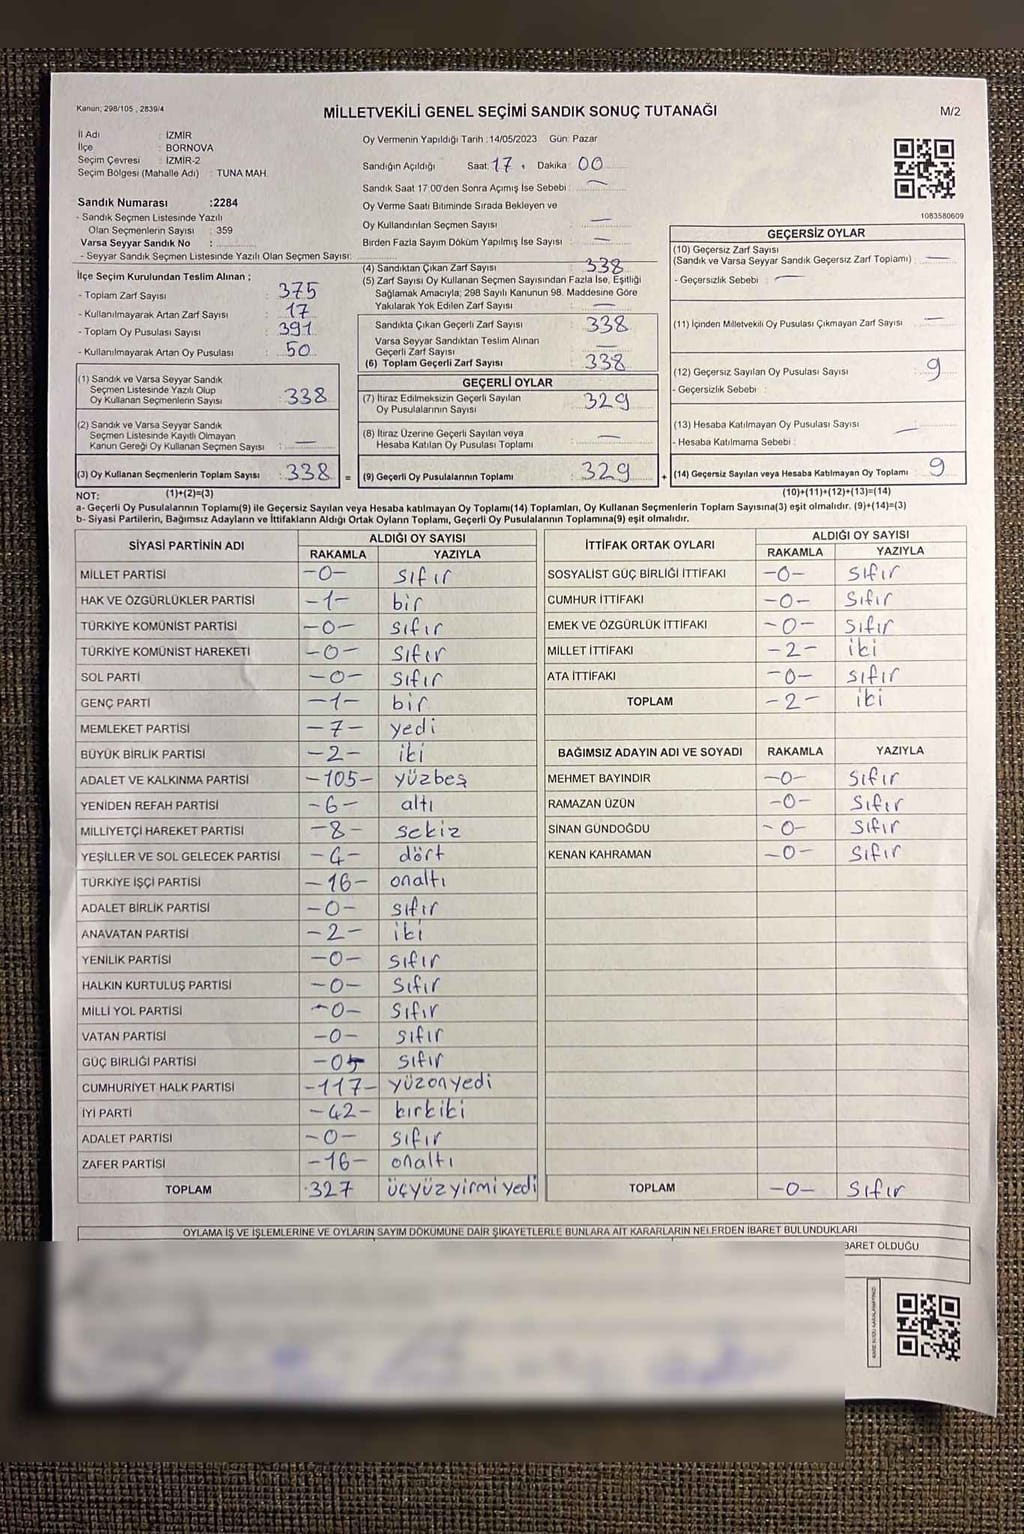 Kanun; 298/105 , 2839/4
MİLLETVEKİLİ GENEL SEÇİMİ SANDIK SONUÇ TUTANAĞI
M/2
İl Adı : İZMİR
İlçe : BORNOVA
Seçim Çevresi : İZMİR-2
Seçim Bölgesi (Mahalle Adı) : TUNA MAH.
Sandık Numarası :2284
- Sandık Seçmen Listesinde Yazılı
Olan Seçmenlerin Sayısı : 359
Varsa Seyyar Sandık No :
- Seyyar Sandık Seçmen Listesinde Yazılı Olan Seçmen Sayısı:
İlçe Seçim Kurulundan Teslim Alınan ;
- Toplam Zarf Sayısı : 375
- Kullanılmayarak Artan Zarf Sayısı : 17
- Toplam Oy Pusulası Sayısı : 391
- Kullanılmayarak Artan Oy Pusulası : 50
(1) Sandık ve Varsa Seyyar Sandık
Seçmen Listesinde Yazılı Olup
Oy Kullanan Seçmenlerin Sayısı : 338
(2) Sandık ve Varsa Seyyar Sandık
Seçmen Listesinde Kayıtlı Olmayan
Kanun Gereği Oy Kullanan Seçmen Sayısı : —
(3) Oy Kullanan Seçmenlerin Toplam Sayısı : 338 =
Oy Vermenin Yapıldığı Tarih :14/05/2023 Gün: Pazar
Sandığın Açıldığı Saat: 17 , Dakika: 00
Sandık Saat 17:00'den Sonra Açımış İse Sebebi : —
Oy Verme Saati Bitiminde Sırada Bekleyen ve
Oy Kullandırılan Seçmen Sayısı : —
Birden Fazla Sayım Döküm Yapılmış İse Sayısı : —
(4) Sandıktan Çıkan Zarf Sayısı : 338
(5) Zarf Sayısı Oy Kullanan Seçmen Sayısından Fazla İse, Eşitliği
Sağlamak Amacıyla; 298 Sayılı Kanunun 98. Maddesine Göre
Yakılarak Yok Edilen Zarf Sayısı : —
Sandıkta Çıkan Geçerli Zarf Sayısı : 338
Varsa Seyyar Sandıktan Teslim Alınan
Geçerli Zarf Sayısı : —
(6) Toplam Geçerli Zarf Sayısı : 338
GEÇERLİ OYLAR
(7) İtiraz Edilmeksizin Geçerli Sayılan
Oy Pusulalarının Sayısı : 329
(8) İtiraz Üzerine Geçerli Sayılan veya
Hesaba Katılan Oy Pusulası Toplamı : —
(9) Geçerli Oy Pusulalarının Toplamı : 329 +
1083580609
GEÇERSİZ OYLAR
(10) Geçersiz Zarf Sayısı
(Sandık ve Varsa Seyyar Sandık Geçersiz Zarf Toplamı) : —
- Geçersizlik Sebebi : —
(11) İçinden Milletvekili Oy Pusulası Çıkmayan Zarf Sayısı : —
(12) Geçersiz Sayılan Oy Pusulası Sayısı : 9
- Geçersizlik Sebebi :
(13) Hesaba Katılmayan Oy Pusulası Sayısı : —
- Hesaba Katılmama Sebebi :
(14) Geçersiz Sayılan veya Hesaba Katılmayan Oy Toplamı : 9
NOT: (1)+(2)=(3) (10)+(11)+(12)+(13)=(14)
a- Geçerli Oy Pusulalarının Toplamı(9) ile Geçersiz Sayılan veya Hesaba katılmayan Oy Toplamı(14) Toplamları, Oy Kullanan Seçmenlerin Toplam Sayısına(3) eşit olmalıdır. (9)+(14)=(3)
b- Siyasi Partilerin, Bağımsız Adayların ve İttifakların Aldığı Ortak Oyların Toplamı, Geçerli Oy Pusulalarının Toplamına(9) eşit olmalıdır.
SİYASİ PARTİNİN ADI ALDIĞI OY SAYISI
RAKAMLA YAZIYLA
MİLLET PARTİSİ -0- sıfır
HAK VE ÖZGÜRLÜKLER PARTİSİ -1- bir
TÜRKİYE KOMÜNİST PARTİSİ -0- sıfır
TÜRKİYE KOMÜNİST HAREKETİ -0- sıfır
SOL PARTİ -0- sıfır
GENÇ PARTİ -1- bir
MEMLEKET PARTİSİ -7- yedi
BÜYÜK BİRLİK PARTİSİ -2- iki
ADALET VE KALKINMA PARTİSİ -105- yüzbeş
YENİDEN REFAH PARTİSİ -6- altı
MİLLİYETÇİ HAREKET PARTİSİ -8- sekiz
YEŞİLLER VE SOL GELECEK PARTİSİ -4- dört
TÜRKİYE İŞÇİ PARTİSİ -16- onaltı
ADALET BİRLİK PARTİSİ -0- sıfır
ANAVATAN PARTİSİ -2- iki
YENİLİK PARTİSİ -0- sıfır
HALKIN KURTULUŞ PARTİSİ -0- sıfır
MİLLİ YOL PARTİSİ -0- sıfır
VATAN PARTİSİ -0- sıfır
GÜÇ BİRLİĞİ PARTİSİ -0- sıfır
CUMHURİYET HALK PARTİSİ -117- yüzonyedi
İYİ PARTİ -42- kırkiki
ADALET PARTİSİ -0- sıfır
ZAFER PARTİSİ -16- onaltı
TOPLAM 327 üçyüzyirmiyedi
İTTİFAK ORTAK OYLARI ALDIĞI OY SAYISI
RAKAMLA YAZIYLA
SOSYALİST GÜÇ BİRLİĞİ İTTİFAKI -0- sıfır
CUMHUR İTTİFAKI -0- sıfır
EMEK VE ÖZGÜRLÜK İTTİFAKI -0- sıfır
MİLLET İTTİFAKI -2- iki
ATA İTTİFAKI -0- sıfır
TOPLAM -2- iki
BAĞIMSIZ ADAYIN ADI VE SOYADI RAKAMLA YAZIYLA
MEHMET BAYINDIR -0- sıfır
RAMAZAN ÜZÜN -0- sıfır
SİNAN GÜNDOĞDU -0- sıfır
KENAN KAHRAMAN -0- sıfır
TOPLAM -0- sıfır
OYLAMA İŞ VE İŞLEMLERİNE VE OYLARIN SAYIM DÖKÜMÜNE DAİR ŞİKAYETLERLE BUNLARA AİT KARARLARIN NELERDEN İBARET BULUNDUKLARI
BARET OLDUĞU